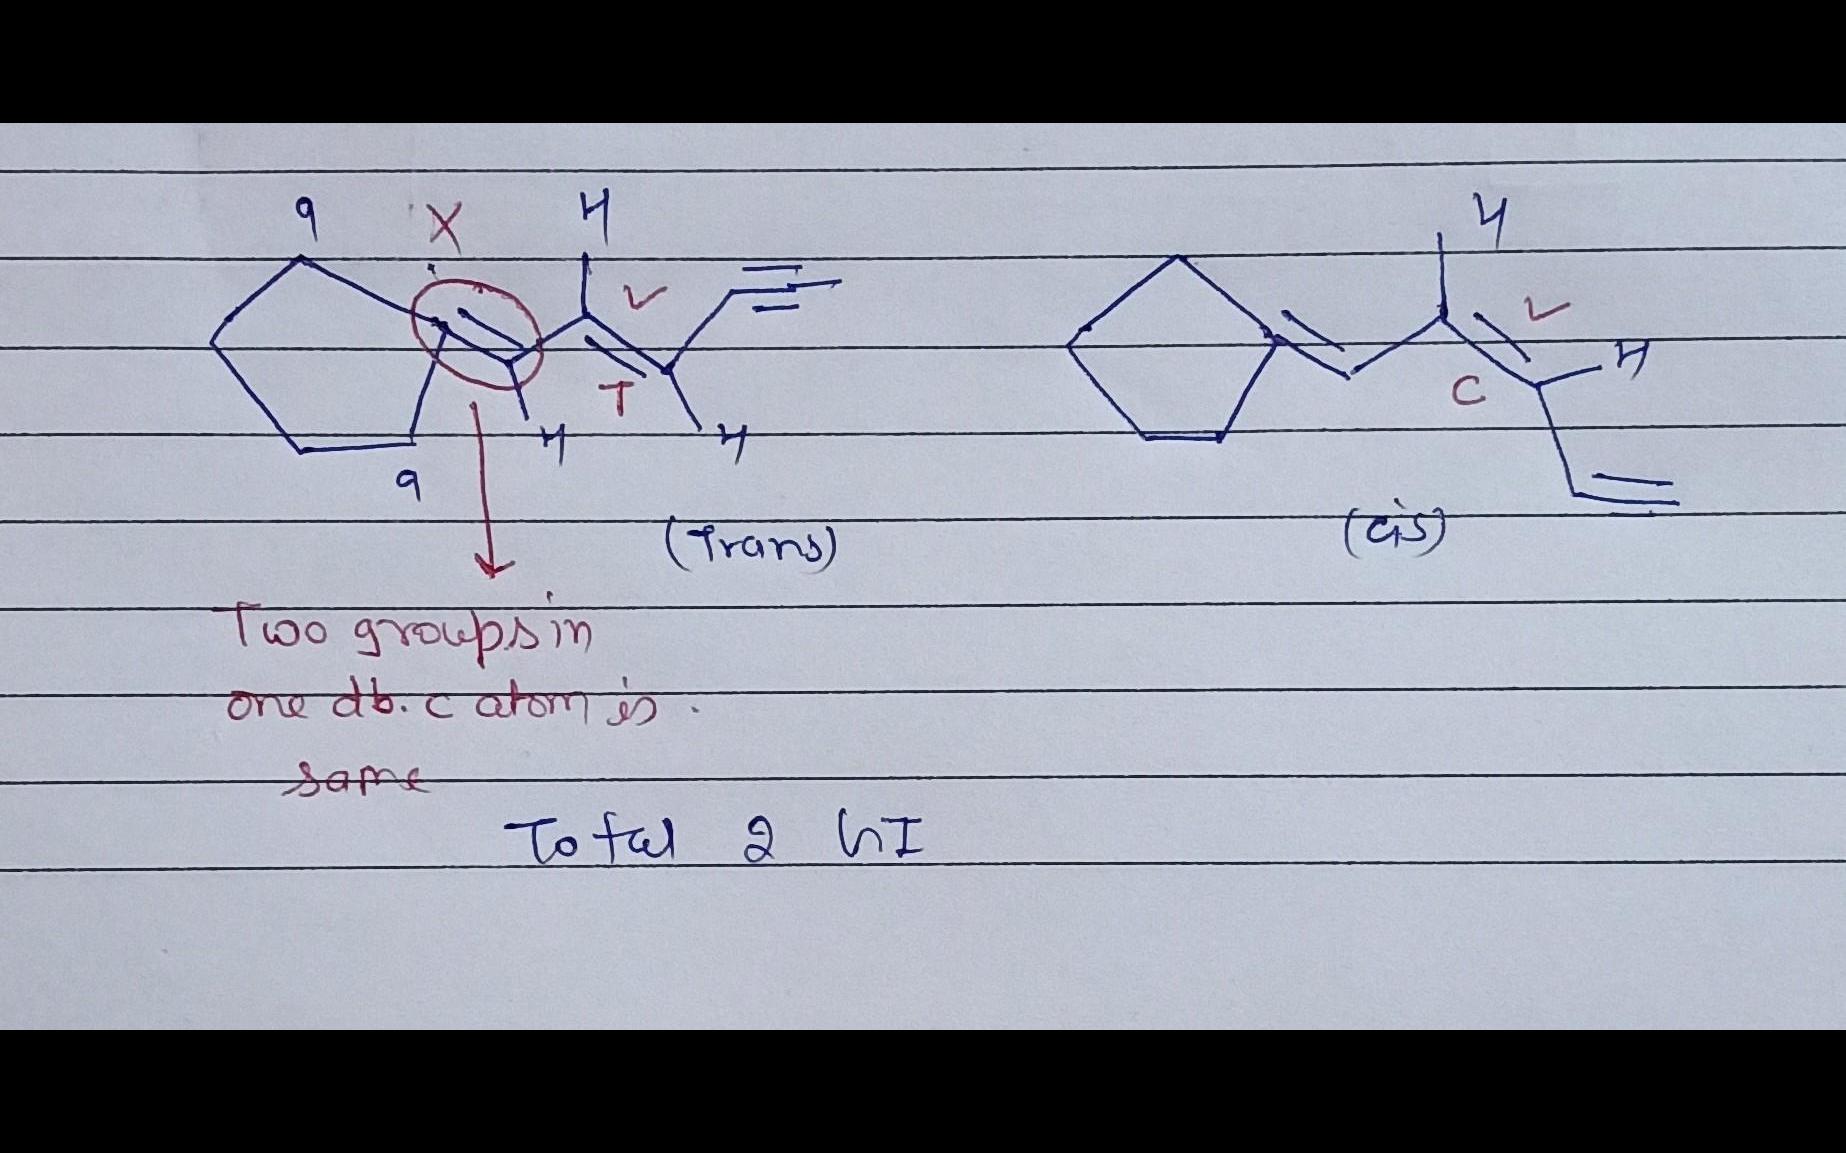 a X H H
V V
H
T C
H H
a
(Trans) (cis)
Two groups in
one db. c atom is
same
Total 2 GI